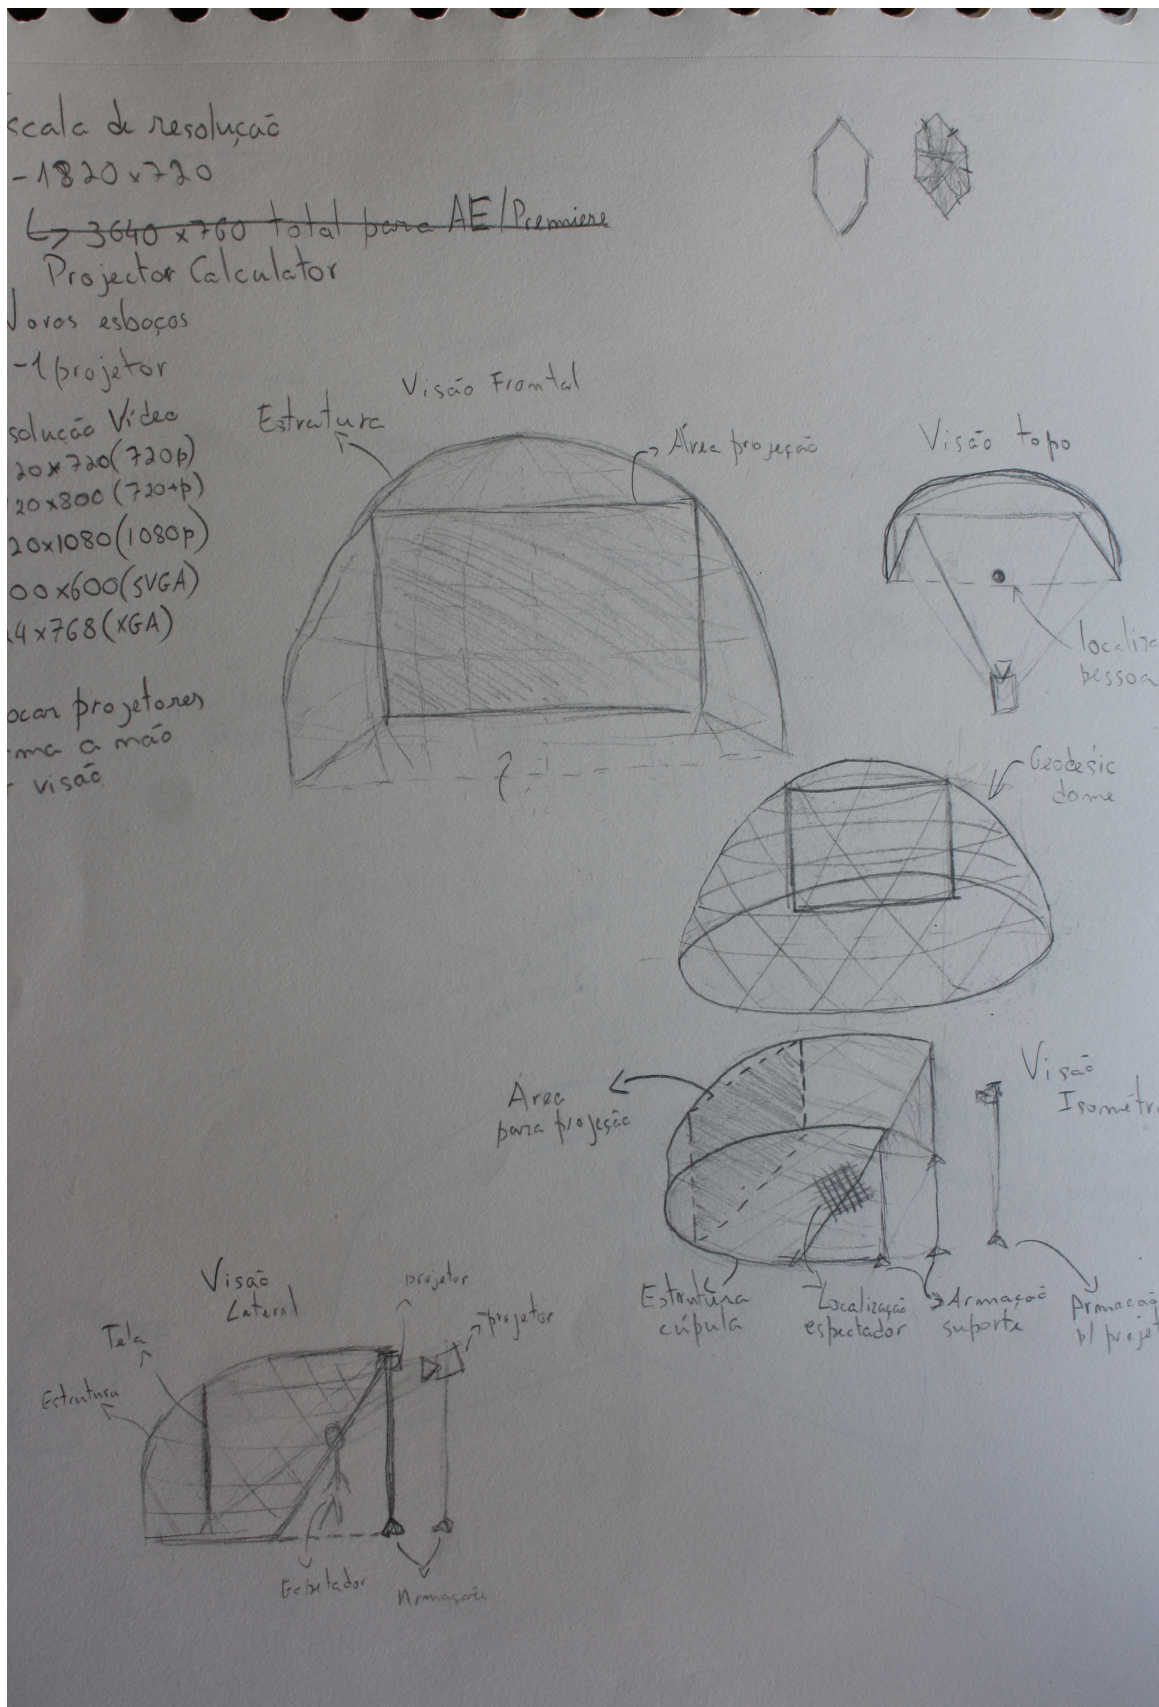 scala de resolução
-1820x720
↳ 3640 x 760 total para AE/Premiere
Projector Calculator
ovos esboços
-1 projetor
solução Vídeo
20x720(720p)
20x800(720+p)
20x1080(1080p)
00x600(SVGA)
4x768(XGA)
ocar projetores
ma a mão
visão
Visão Frontal
Estrutura
Área projeção
Visão topo
localiza
pessoa
Geodesic
dome
Visão
Isométr
Área
para projeção
Estrutura
cúpula
Localização
espectador
Armação
suporte
Armação
p/ projet
Visão
Lateral
projetor
projetor
Tela
Estrutura
Espetador
Armações